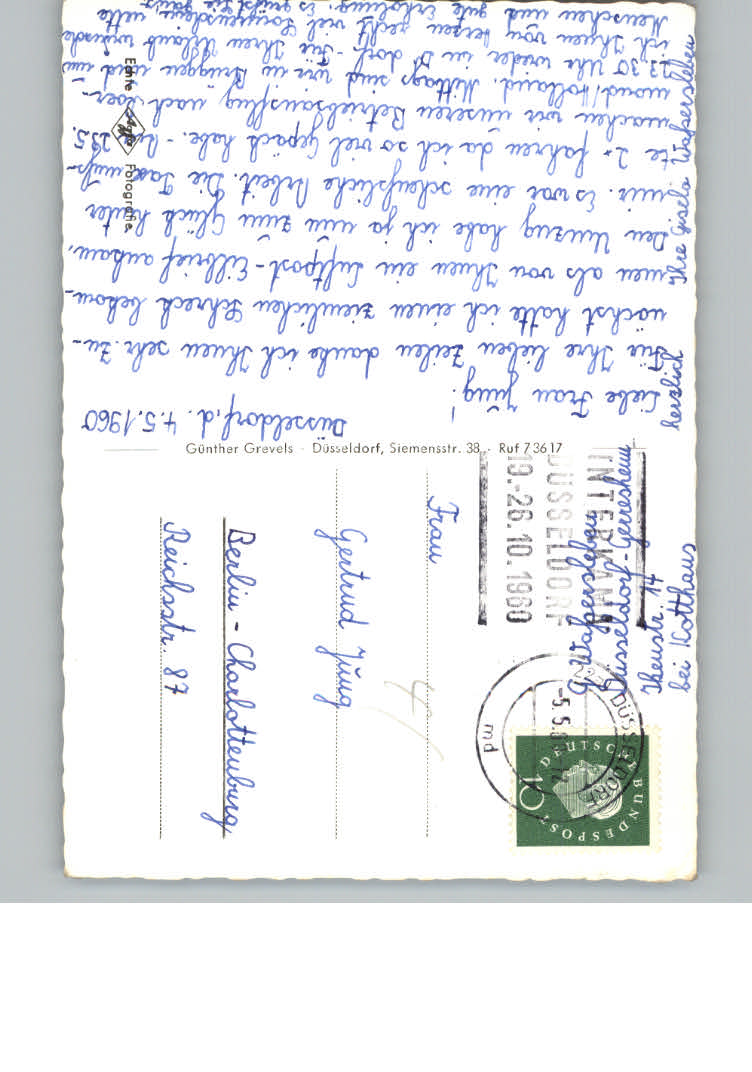 Düsseldorf, d. 4.5.1960
Liebe Frau Jung!
Für Ihre lieben Zeilen danke ich Ihnen sehr. Zu-
nächst hatte ich einen ziemlichen Schreck bekom-
men als von Ihnen ein Luftpost-Eilbrief ankam.
Den Umzug habe ich nun ja zum Glück hinter
mir. Es war eine scheußliche Arbeit. Die muß-
te 2 x fahren da ich so viel Gepäck habe. - Am 29.5.
machen wir unseren Betriebsausflug nach
mond/Holland. Mittags sind wir in Brüggen und um
23.30 Uhr wieder in D'dorf. - Für Ihren Urlaub wünsche
ich Ihnen von Herzen recht viel Sonnenschein nette
Menschen und gute Erholung. Es grüßt Sie ganz
herzlich
Ihre Gisela Waßersleben
Echte
Agfa
Fotografie
Günther Grevels · Düsseldorf, Siemensstr. 38 · Ruf 73617
INTERKAMA
DÜSSELDORF
19.-26.10.1960
DÜSSELDORF
-5.5.60
md
DEUTSCHE BUNDESPOST
10
G. Waßersleben
Düsseldorf-Gerresheim
Iheustr. 14
bei Kotthaus
Frau
Gertrud Jung
Berlin - Charlottenburg
Reichsstr. 87